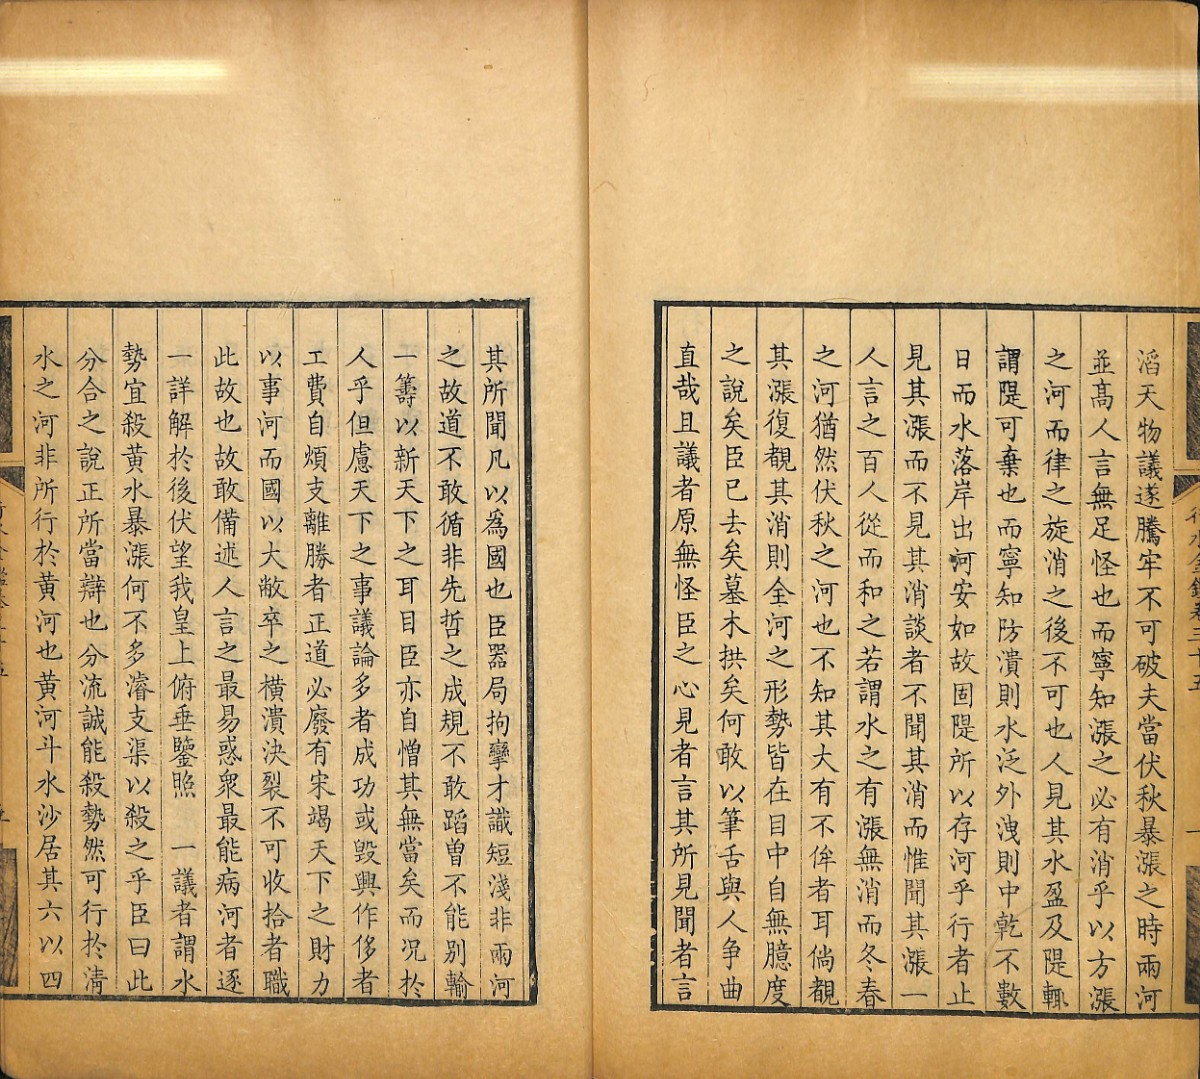 滔天物議遂騰牢不可破夫當伏秋暴漲之時兩河
並髙人言無足怪也而寧知漲之必有消乎以方漲
之河而律之旋消之後不可也人見其水盈及隄輒
謂隄可棄也而寧知防潰則水泛外洩則中乾不數
日而水落岸出河安如故固隄所以存河乎行者止
見其漲而不見其消談者不聞其消而惟聞其漲一
人言之百人從而和之若謂水之有漲無消而冬春
之河猶然伏秋之河也不知其大有不侔者耳倘覩
其漲復覩其消則全河之形勢皆在目中自無臆度
之說矣臣已去矣墓木拱矣何敢以筆舌與人争曲
直哉且議者原無怪臣之心見者言其所見聞者言
其所聞凡以為國也臣器局拘攣才識短淺非兩河
之故道不敢循非先哲之成規不敢蹈曽不能别輸
一籌以新天下之耳目臣亦自憎其無當矣而况於
人乎但慮天下之事議論多者成功或毁興作侈者
工費自煩支離勝者正道必廢有宋竭天下之財力
以事河而國以大敝卒之横潰决裂不可收拾者職
此故也故敢備述人言之最易惑衆最能病河者逐
一詳解於後伏望我皇上俯垂鑒照 一議者謂水
勢宜殺黄水暴漲何不多濬支渠以殺之乎臣曰此
分合之說正所當辯也分流誠能殺勢然可行於清
水之河非所行於黄河也黄河斗水沙居其六以四